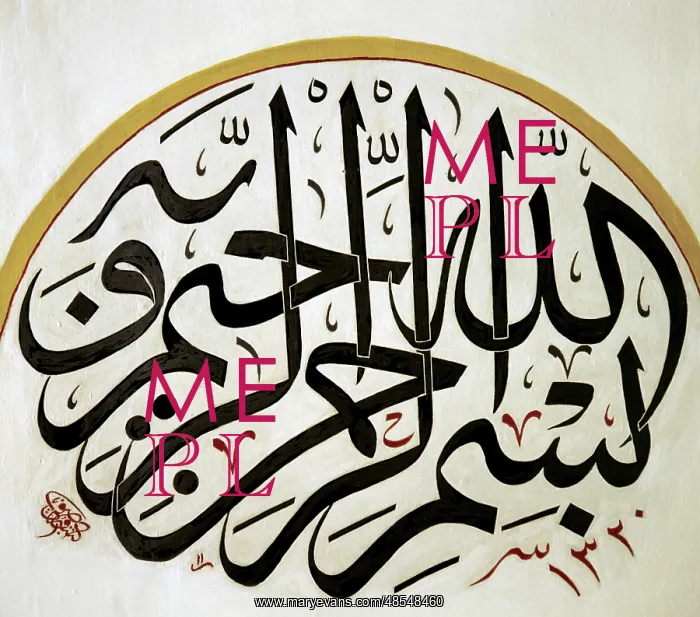 بسم الله الرحمن الرحيم
ME
PL
ME
PL
www.maryevans.com/48548460